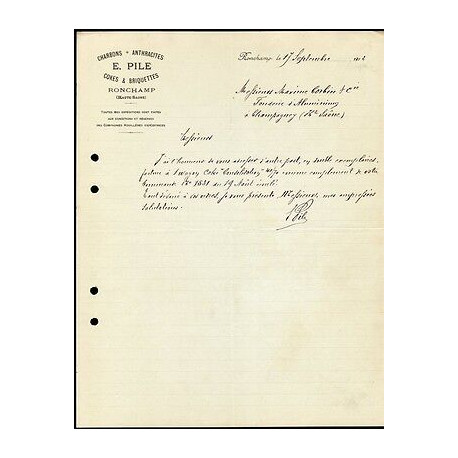 CHARBONS - ANTHRACITES
E. PILE
COKES & BRIQUETTES
RONCHAMP
(HAUTE-SAONE)
TOUTES MES EXPÉDITIONS SONT FAITES
AUX CONDITIONS ET RÉSERVES
DES COMPAGNIES HOUILLÈRES
Ronchamp, le 17 Septembre
Messieurs Maxime Corbin & Cie
Fonderie d'Aluminium
à Champagney (Hte Saône)
Messieurs
J'ai l'honneur de vous adresser d'autre part, en double exemplaires,
facture à wagon Coke comme complément de votre
commande No 1631 du 19 Août
Tout dévoué à vos ordres, je vous présente, Messieurs, mes empressées
salutations.
E Pile